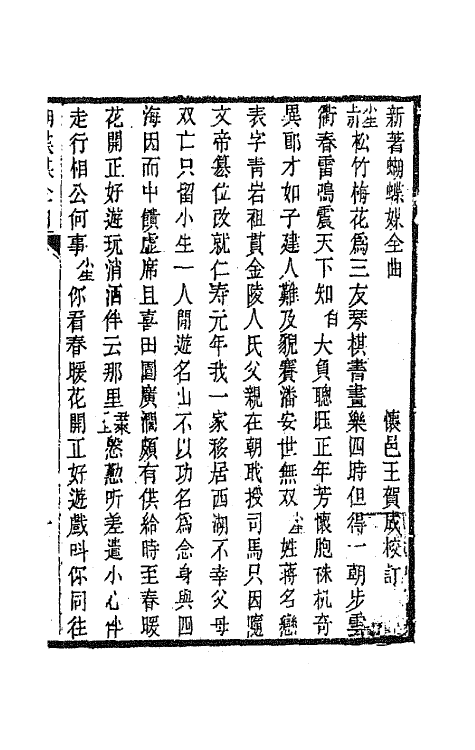 新著蝴蝶媒全曲　懷邑王賀成校訂
小生上引松竹梅花爲三友琴棋書畫樂四時但得一朝步雲
衢春雷鴻震天下知白大負聰珏正年芳懷胞硃杭奇
異郎才如子建人難及貌賽潘安世無双小生姓蔣名戀
表字青岩祖貫金陵人氏父親在朝戝授司馬只因隨
文帝簒位改就仁寿元年我一家移居西湖不幸父母
双亡只留小生一人閒遊名山不以功名爲念身與四
海因而中饋虛席且喜田園廣濶頗有供給時至春暖
花開正好遊玩消洒伴云那里上慇懃听差遣小心伴
走行相公何事小生你看春暖花開正好遊戲呌你同往